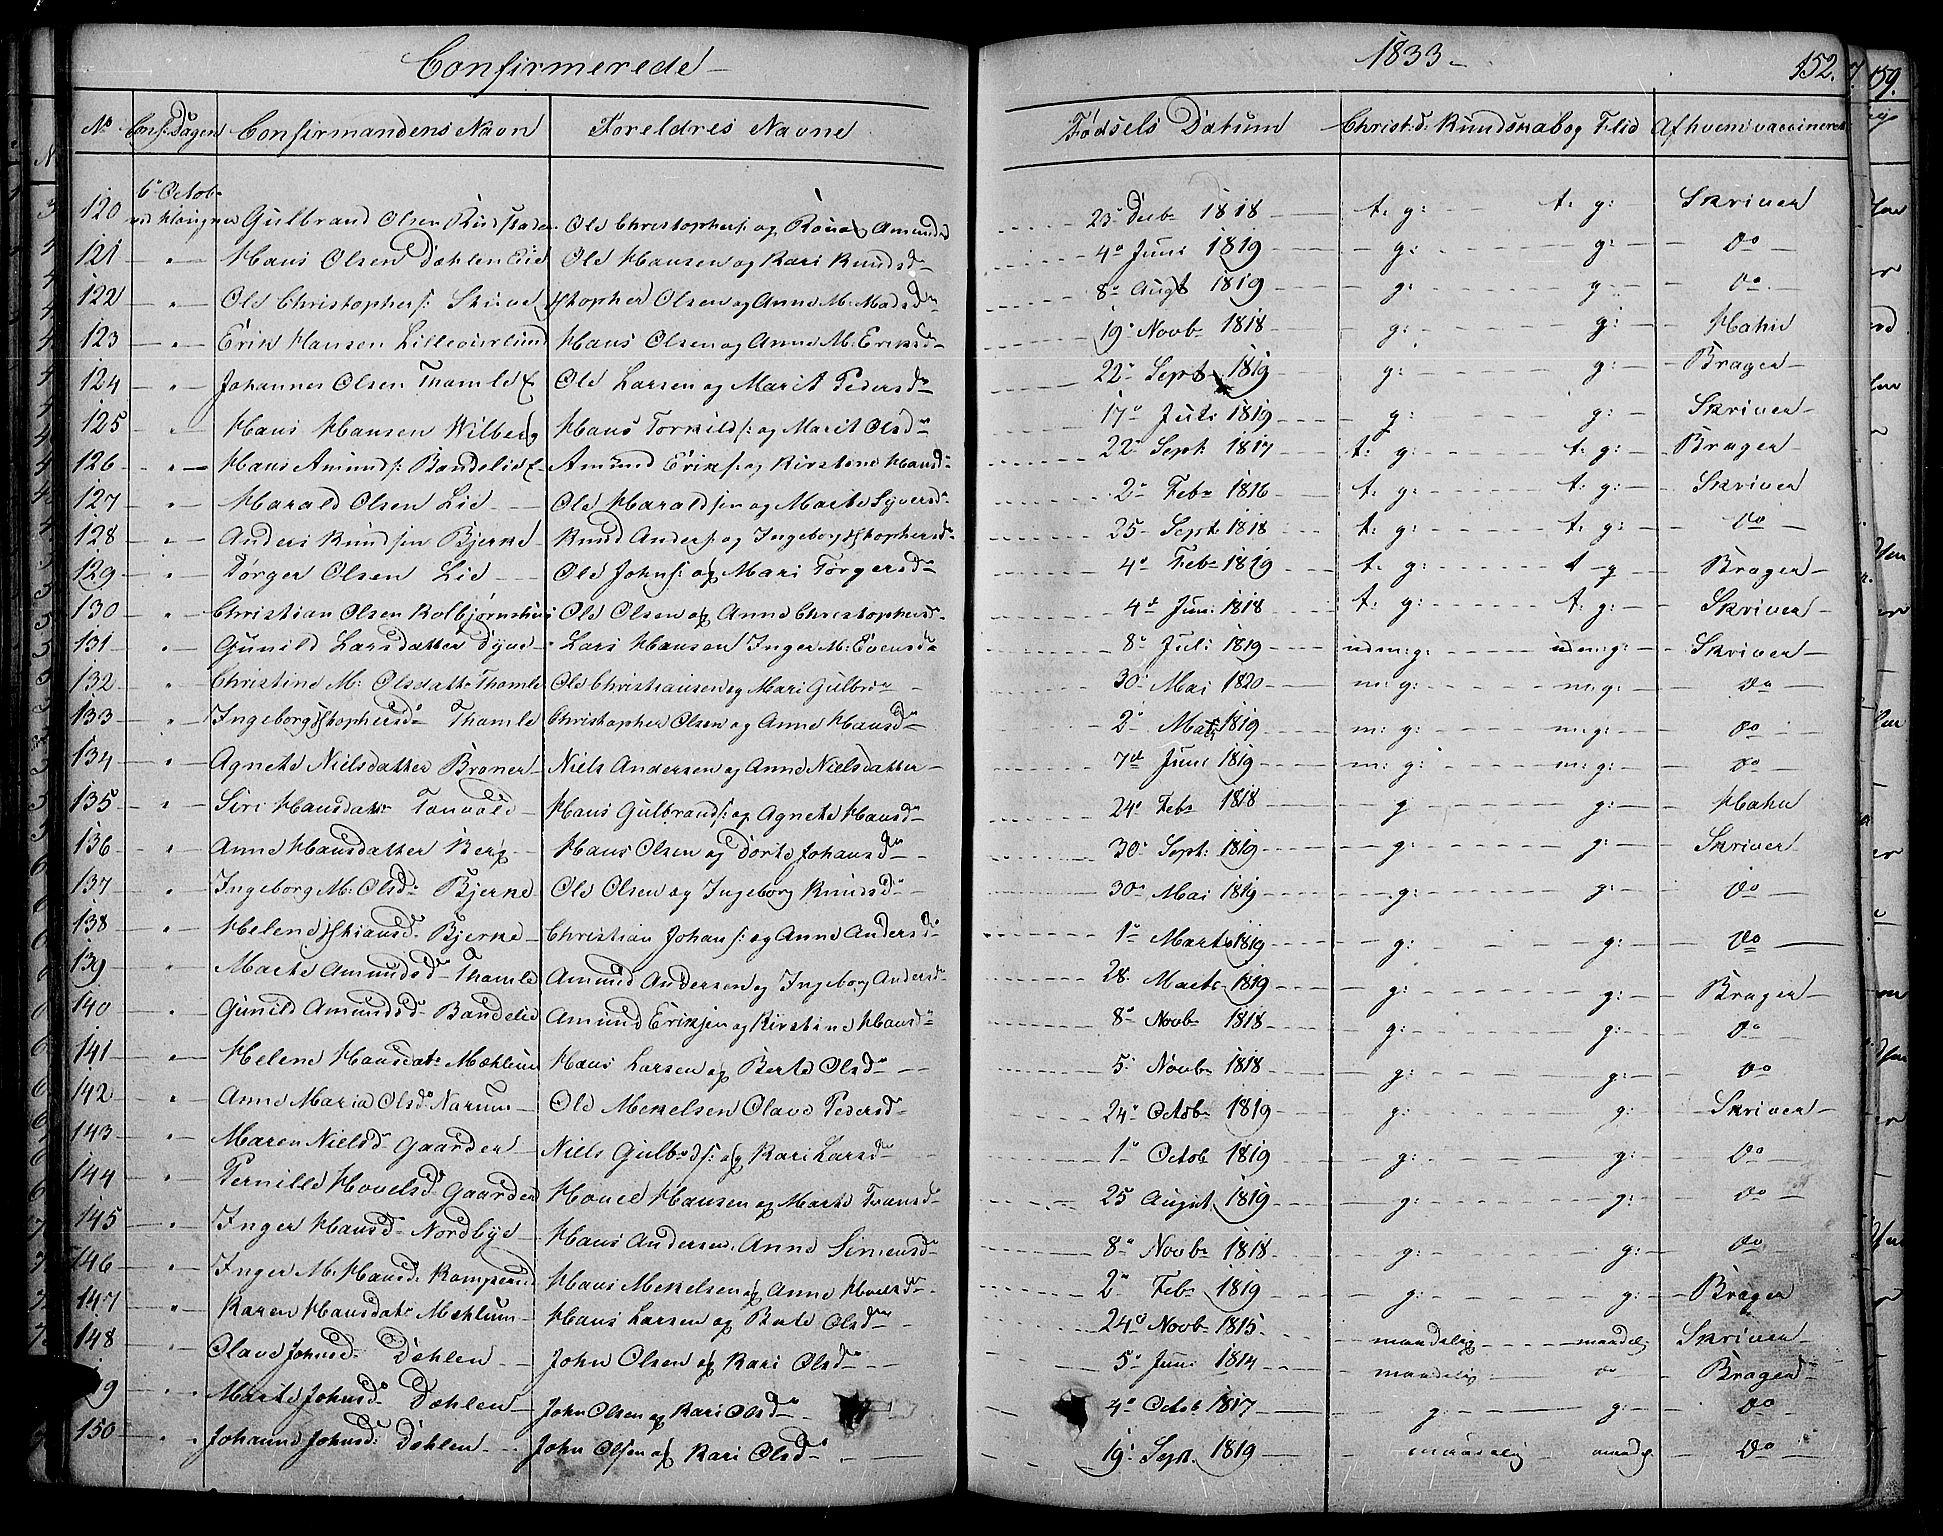 Confirmerede
1833
152.
No Conf: Dagen Confirmandens Navn Foreldres Navne Fødsels Datum Christ:d: Kundskab og Flid Af hvem vaccineret
6te Octob
120 Gulbrand Olsen Ole Christophers: og Amunds 23 Decb 1818 t: g: t: g: Skriver
121 " Hans Olsen Dæhlen Eie Ole Hansen og Kari Knudsd 4de Juni 1819 g: g: Do
122 " Ole Christophers: Xstopher Olsen og Anne M: Madsd 8de Augt 1819 g: g: Do
123 " Erik Hansen Hans Olsen og Anne M: Eriksd 19 Novb 1818 g: g: Hahn
124 " Johannes Olsen Thamle E Ole Larsen og Marit Pedersd 22 Sept 1819 g: g: Brager
125 " Hans Hansen Wilberg Hans Torkilds: og Marit Olsd 17 Juli 1819 g: g: Skriver
126 " Hans Amunds: Bondelie E Amund Eriks: og Kirstine Hansd 22 Sept 1817 t: g: t: g: Brager
127 " Harald Olsen Lie Ole Haraldsen og Marte Syversd 2 Feb 1816 t: g: t: g: Skriver
128 " Anders Knudsen Bjerke Knud Anders: og Ingeborg Xstophersd 25 Sept 1818 t: g: t: g: Do
129 " Torger Olsen Lie Ole Johns: og Mari Torgersd 4 Feb 1819 t: g: t g Brager
130 " Christian Olsen Kolbjørnshus Ole Olsen og Anne Christophersd 4de Juni 1818 t: g: t: g: Skriver
131 " Gunild Larsdatter Dyve Lars Hansen Inger M: Evensd 8 Juli 1819 udm: g: udm: g: Skriver
132 " Christine M: Olsdatt Thamle Ole Christiansen og Mari Gulbr 30 Mai 1820 m: g: m: g: Do
133 " Ingeborg Xstophersd Thamle Christopher Olsen og Anne Hansd 2 1819 m: g: m: g: Do
134 " Agnete Nielsdatter Broner Niels Andersen og Anne Nielsdatter 7de Juni 1819 m: g: m: g: Do
135 " Siri Hansdatr Tonvold Hans Gulbrands: og Agnete Hansd 24 Feb 1818 g g: Hahn
136 " Anne Hansdatter Berg Hans Olsen og Dorte Johansd 30 Sept: 1819 g: g: Skriver
137 " Ingeborg M: Olsd Bjerke Ole Olsen og Ingeborg Knudsd 30 Mai 1819 g: g: Do
138 " Helene Xtiansd Bjerke Christian Johans: og Anne Andersd 1 Marts 1819 g: g: Do
139 " Marte Amundsd Thamle Amund Andersen og Ingeborg Andersd 28 Marts 1819 g: g: Brager
140 " Gunild Amundsd Bondelie Amund Eriksen og Kirstine Hansd 8 Novb 1818 g: g: Do
141 " Helene Hansdatr Mæhlum Hans Larsen og Berte Olsd 5 Novb 1818 g: g: Do
142 " Anne Maria Olsd Narum Ole Mekelsen Olave Pedersd 24 Octob 1819 g: g: Skriver
143 " Maren Nielsd Gaarder Niels Gulbds: og Kari Larsd 1 Octob 1819 g: g: Do
144 " Pernille Hovelsd Gaarder Hovel Hansen og Marte Fransd 25 August 1819 g: g: Do
145 " Inger Hansd Nordbye Hans Andersen Anne Simensd 8 Novb 1818 g: g: Do
146 " Inger M: Hansd Hans Mekelsen og Anne 2 Feb 1819 g: g: Brager
147 " Karen Hansdatr Mæhlum Hans Larsen og Berte Olsd 24 Novb 1815 maadelig maadel Skriver
148 " Olave Johnsd Dæhlen John Olsen og Kari Olsd 5 Juni 1814 maadelig Do Brager
149 " Marte Johnsd Dæhlen John Olsen og Kari Olsd 4 Octob 1817 g: g: Do
150 " Johanne Johnsd: Dæhlen John Olsen og Kari Olsd 19 Sept. 1819 maadelig maadel Do
159.